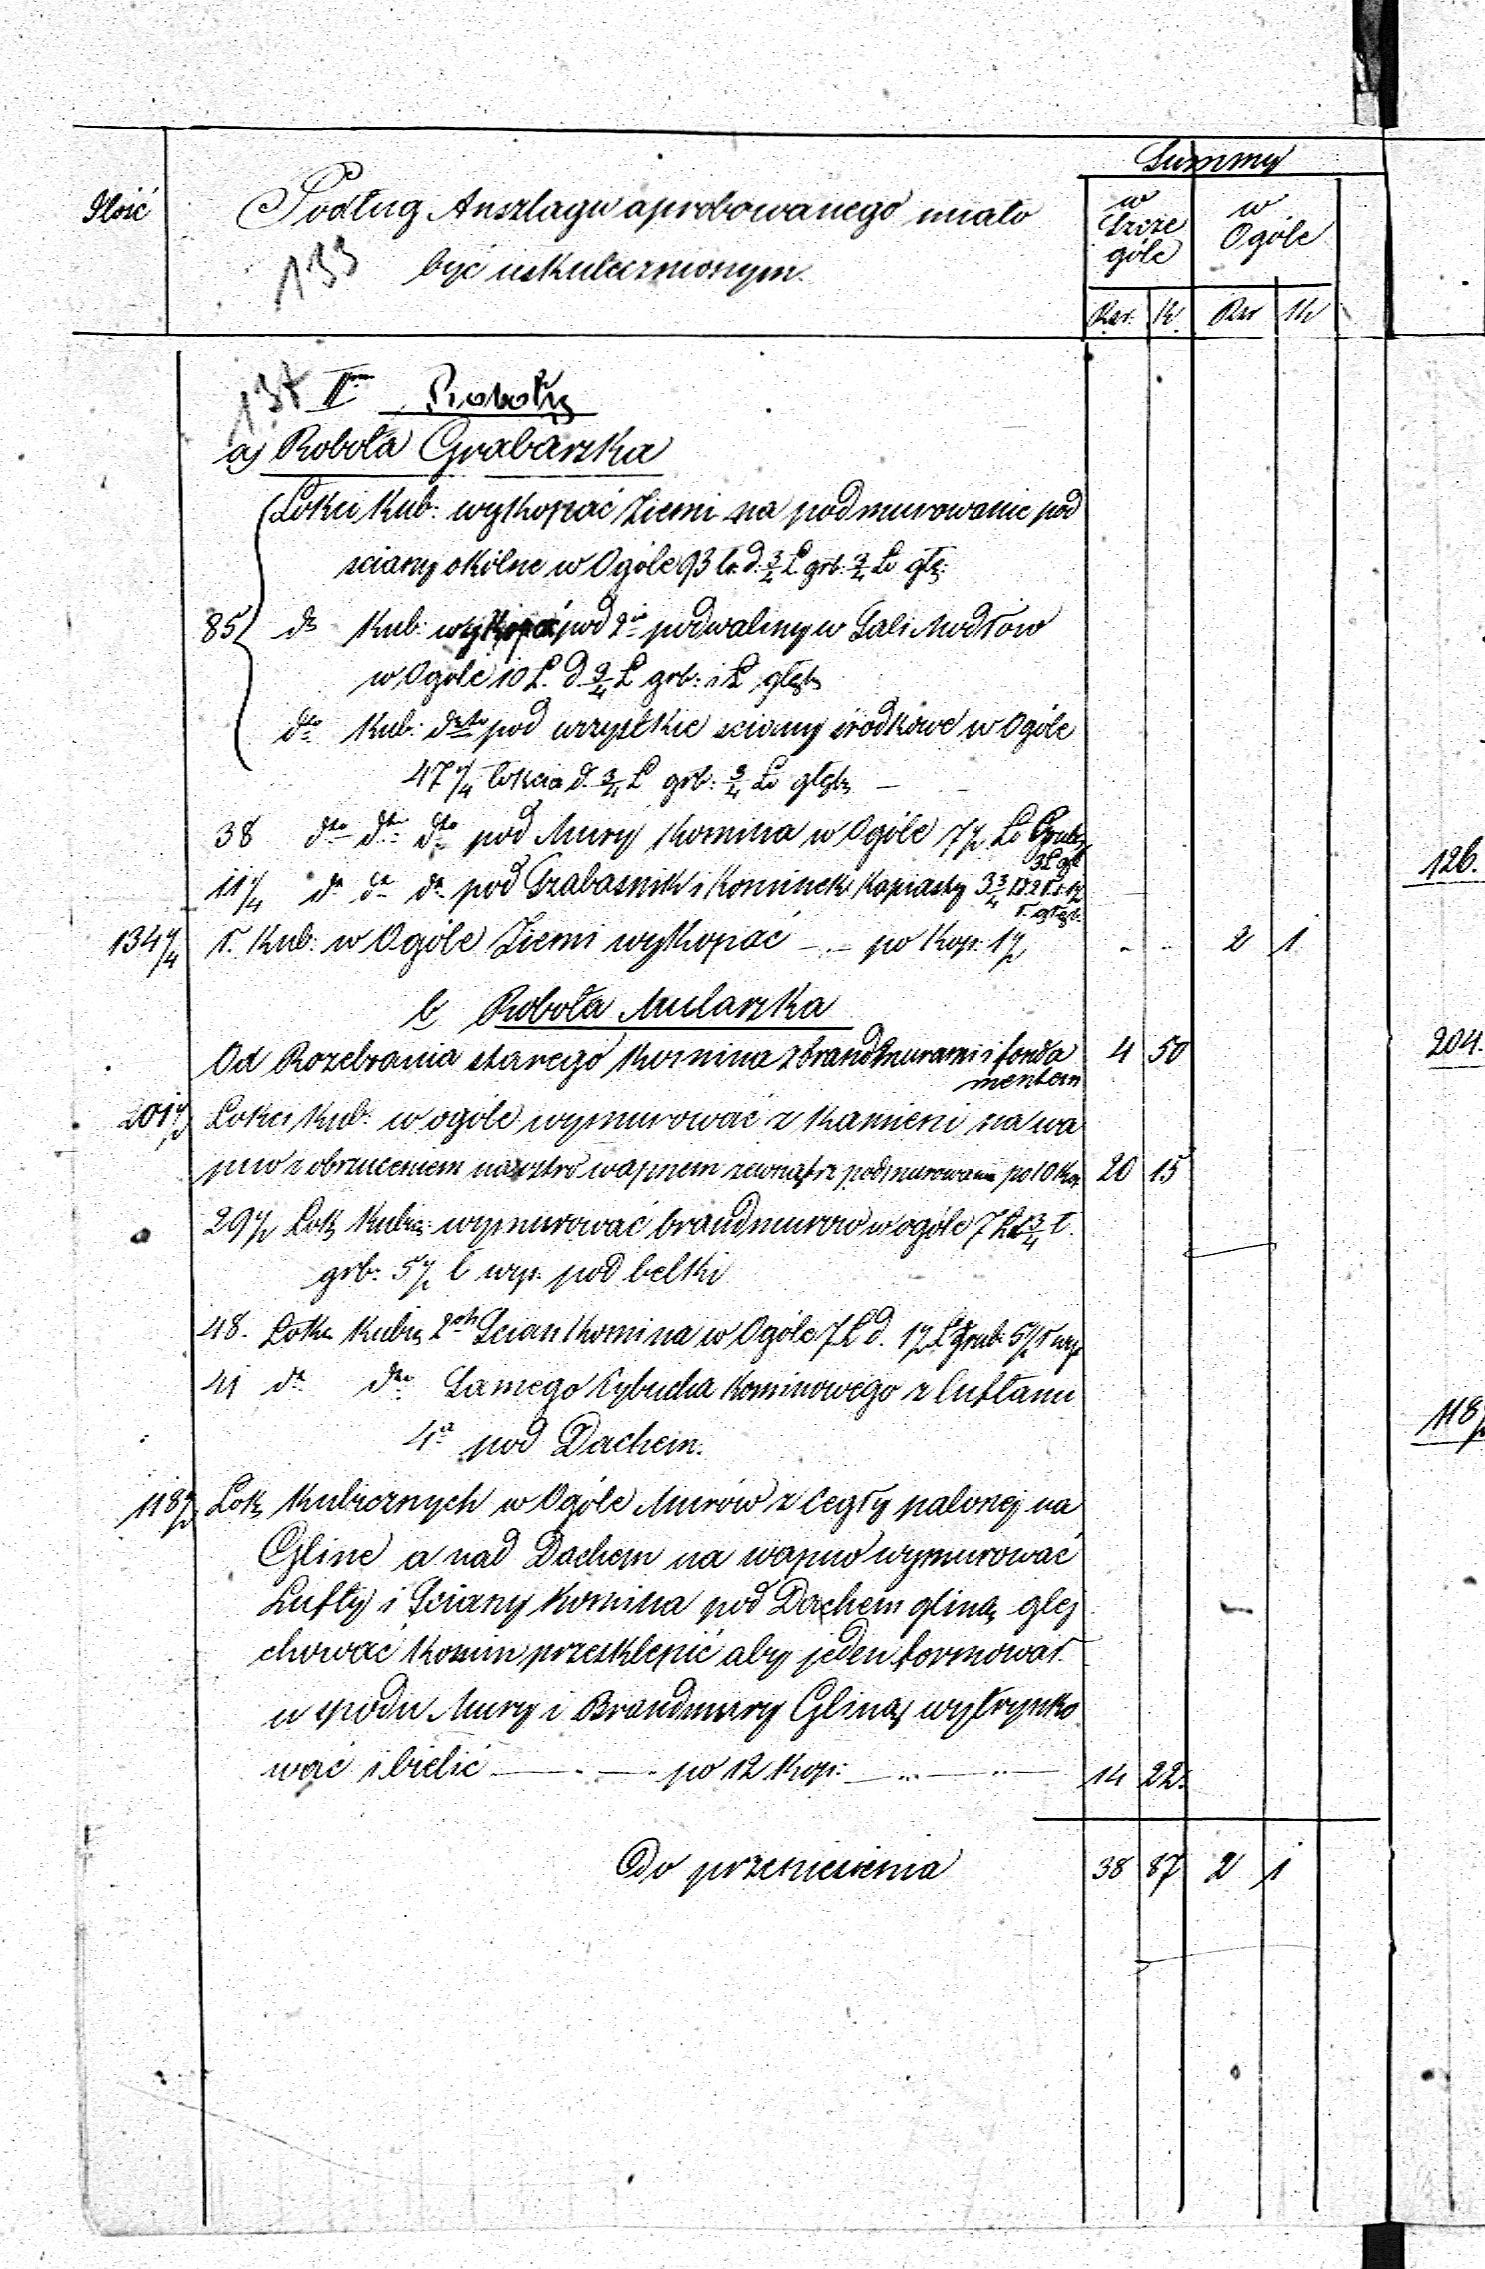 Summy
Ilość
Podług Anszlagu aprobowanego miało
być uskutecznionym.
133
w Szcze
góle
w
Ogóle
Rsr. K. Rsr K
137 II Roboty
a) Robota Grabarska
Łokci Kub: wykopać Ziemi na podmurowanie pod
sciany okólne w Ogóle 93 Ł. d. 3/4 Ł grb: 3/4 Ł głę:
85 dto Kub: wykopać pod 2ie podwaliny w Sali Modłów
w Ogóle 10 Ł. d 3/4 Ł grb: 1 Ł głęb
dto Kub: dtto pod wszystkie sciany srodkowe w Ogóle
47 1/4 łokcia d. 3/4 Ł grb: 3/4 Ł głęb
38 dto dto dto pod Mury Komina w Ogóle 7 1/2 Ł
11 1/4 dto dto dto pod Szabasnik i Kominek Kapiasty 3 3/4
134 1/4 Ł. Kub: w Ogóle Ziemi wykopać - - po Kop: 1 1/2 - - 2 1
b Robota Mularska
Od Rozebrania starego Komina z brandmurami i fonda 4 50
mentem
201 1/2 Łokci Kub: w ogóle wymurować z Kamieni na wa
pno z obrzuceniem na ostro wapnem zewnątrz podmurowania po 10 Kop 20 15
29 1/2 Łok Kubic: wymurować brandmurów w ogóle 7 Ł d 3/4 Ł.
grb: 5 1/2 Ł wys. pod belki
48. Łokci Kubic 2ch Scian Komina w Ogóle 7 Ł d. 1 1/2 Ł grub: 5 1/2 Ł wys
41 dto dto Samego Cybucha Kominowego z luftami
4a pod Dachem.
118 1/2 Łok Kubicznych w Ogóle Murów z Cegły palonej na
Glinę a nad Dachem na wapno wymurować
Lufty i Sciany Komina pod Dachem gliną glej
chować Komin przesklepić aby jeden formował
u spodu Mury i Brandmury Gliną wytrynko
wać i bielić - - - po 12 Kop: - - - 14 22
Do przeniesienia 38 87 2 1
126.
204.
118